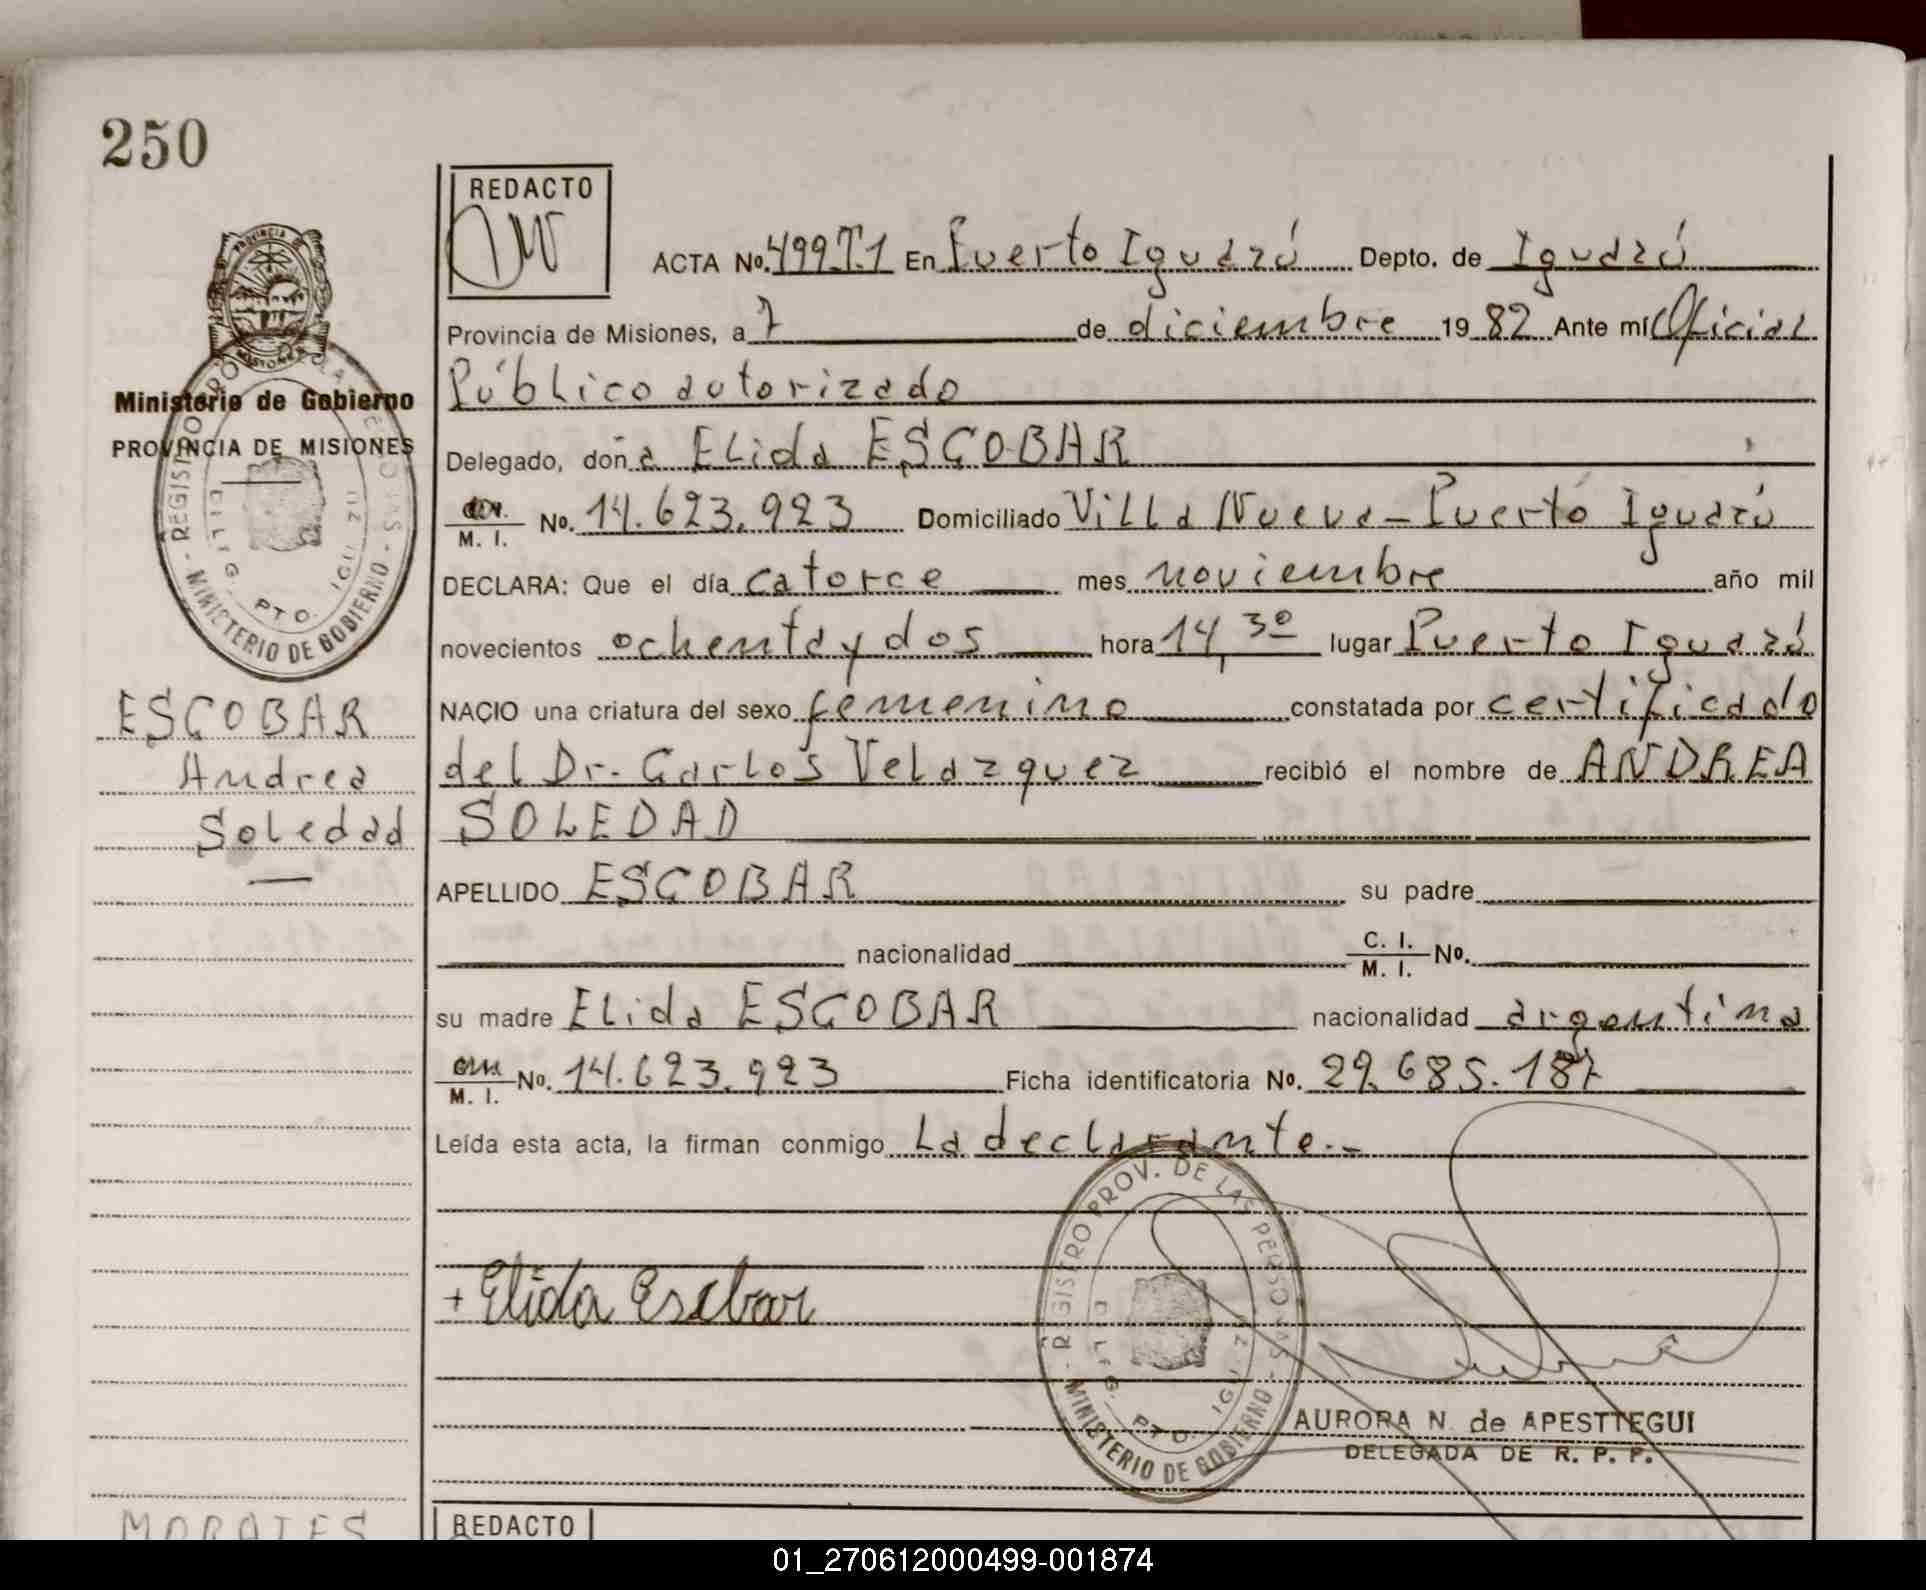 250
REDACTO
ACTA No. 499.T.1 En Puerto Iguazú Depto. de Iguazú
Provincia de Misiones, a 7 de diciembre 1982 Ante mí Oficial
Público autorizado
Ministerio de Gobierno
PROVINCIA DE MISIONES
Delegado, doña Elida ESCOBAR
M. I. No. 14.623.923 Domiciliado Villa Nueva - Puerto Iguazú
DECLARA: Que el día catorce mes noviembre año mil
novecientos ochenta y dos hora 14,30 lugar Puerto Iguazú
NACIO una criatura del sexo femenino constatada por certificado
del Dr. Carlos Velazquez recibió el nombre de ANDREA
SOLEDAD
ESCOBAR
Andrea
Soledad
APELLIDO ESCOBAR su padre
nacionalidad C. I. M. I. No.
su madre Elida ESCOBAR nacionalidad argentina
M. I. No. 14.623.923 Ficha identificatoria No. 29.685.187
Leída esta acta, la firman conmigo La declarante.-
+ Elida Escobar
REGISTRO PROV. DE LAS PERSONAS - MINISTERIO DE GOBIERNO -
PTO. IGUZU
AURORA N. de APESTTEGUI
DELEGADA DE R. P. P.
MORALES
REDACTO
01_270612000499-001874